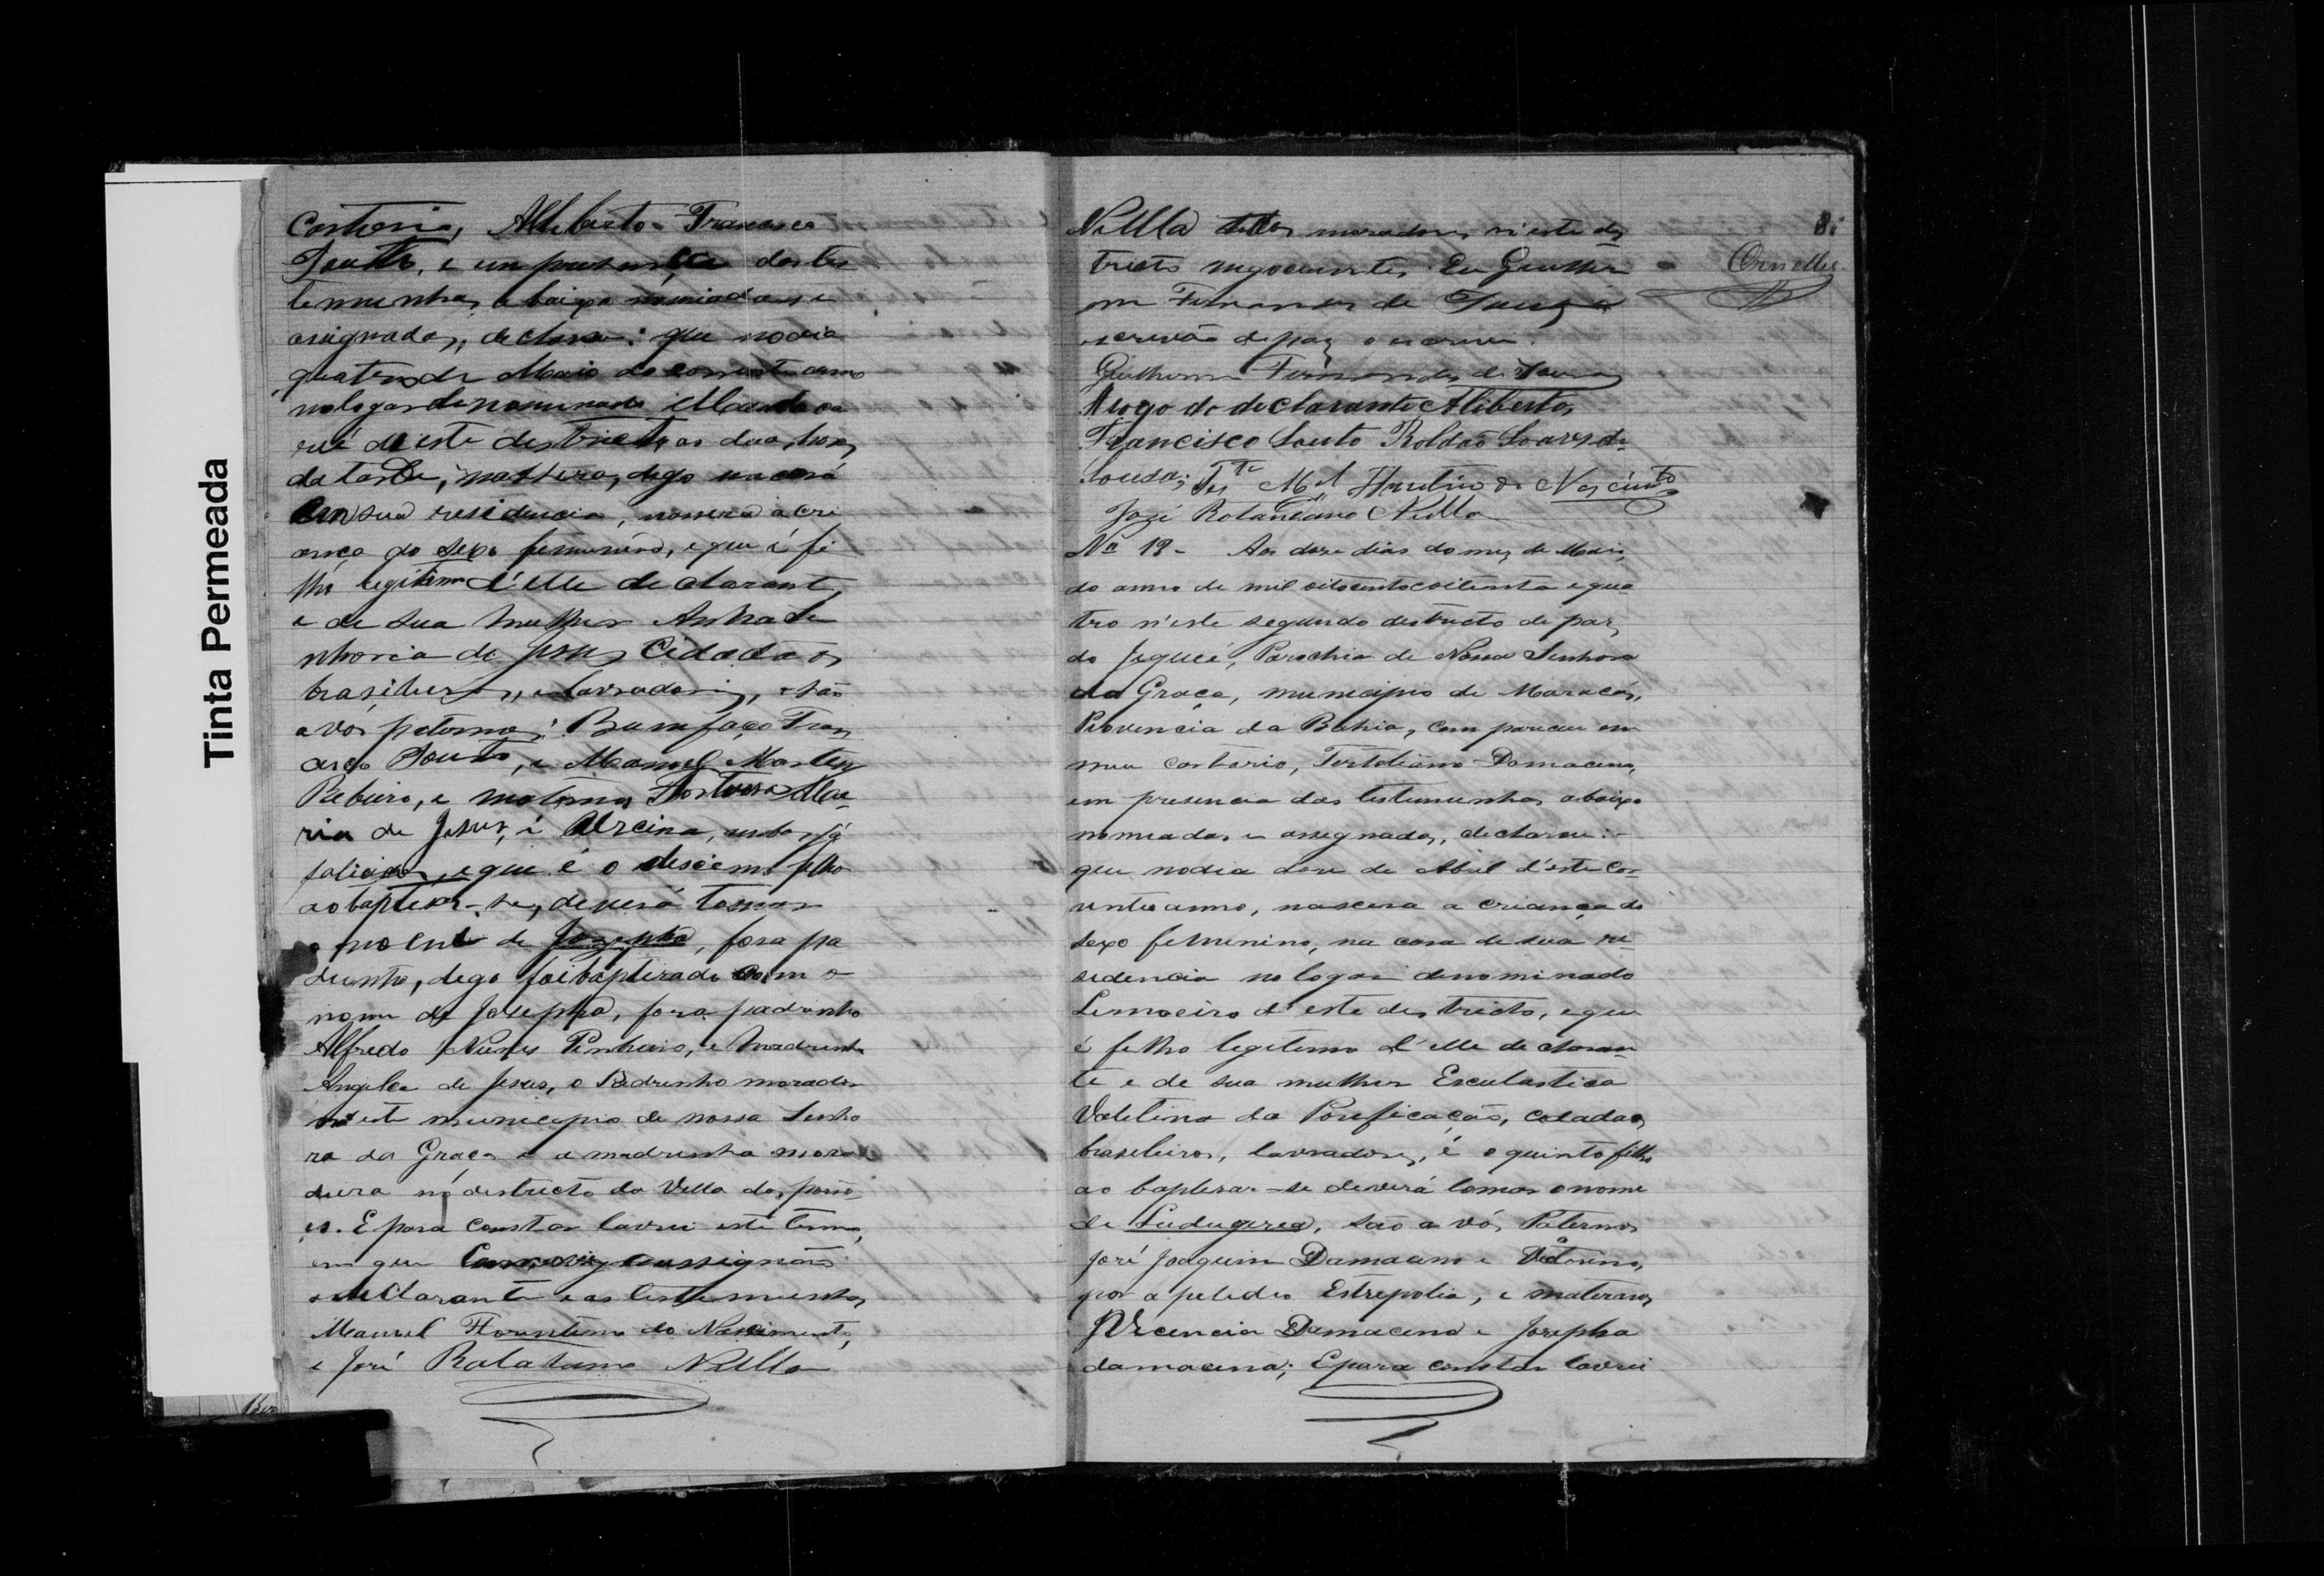 Tinta Permeada
Cartorio, Aliberto Francisco
Souto, e em presença das tes
temunhas abaixo nomiadas e
assignadas, declarou: que no dia
quatro de Maio do corrente anno
no logar denominado
d'este destricto, as duas horas
da tarde, digo na casa
em sua residencia, nascera a cri
ança do sexo femenino, e que é fi
lha legitima d'elle declarante,
e de sua mulher Anna Se
nhoria de Jesus Cidadãos
brasileiros, lavradores, são
avós paternos: Bumfaço Fran
cisco Souto, e Manoel Martins
Rebeiro, e maternos Ma
ria de Jesus, é Ursina, ambos já
falicidos, e que é o descimo filho
ao baptesar-se, deverá tomar
o nome de Jozepha, fora pa
drinho, digo foi baptizada com o
nome de Josepha, fora padrinho
Alfredo Nunes Pinheiro, e Madrinha
Angelca de Jesus, o Padrinho morador
n'este municepio de nossa Senho
ra da Graça e a madrinha mora
deira no destricto da Villa dos
E para constar lavrei este termo,
em que commigo assignão
o declarante e as testemunhas
Manuel Florentino do Nascimento,
e José Rotatiano Nella
Nella todos moradores n'este des
tricto negociantes Eu Guilher
me Fernandes de Souza
escrevão de paz o escrevi.
Guilherme Fernandes de Souza
A rogo do declarante Aliberto
Francisco Souto Roldão Soares de
Sousa; Tes.te M.el Flrentino do Nascim.to
Jozé Rotandano Nella
8
Ornellas
Nº 12 - Aos doze dias do mez de Maio,
do anno de mil oitocentos oitenta e qua
tro n'este segundo destricto de paz,
do Jiquié, Parochia de Nossa Senhora
da Graça, municipio de Maracás,
Provencia da Bahia, compareceu em
meu Cartorio, Tertoliano Damaceno,
em presencia das testemunhas abaixo
nomeadas e assegnadas, declarou:-
que no dia doze de Abril d'este Cor
rente anno, nascera a criança do
sexo femenino, na casa de sua re
sedencia no logar denominado
Lemoeiro d'este destricto, e que
é filho legetemo d'elle declaran
te e de sua mulher Esculastica
Valetina da Poreficação, cedadãos
braseleiros, lavradores, é o quinto filho
ao baptesar-se deverá tomar o nome
de Ludugerea, são avós Paternos
José Joaquim Damaceno e Vetorina,
por apeledio Estrepolia, e maternos
Vicencia Damacena e Josepha
damacena; E para constar lavrei